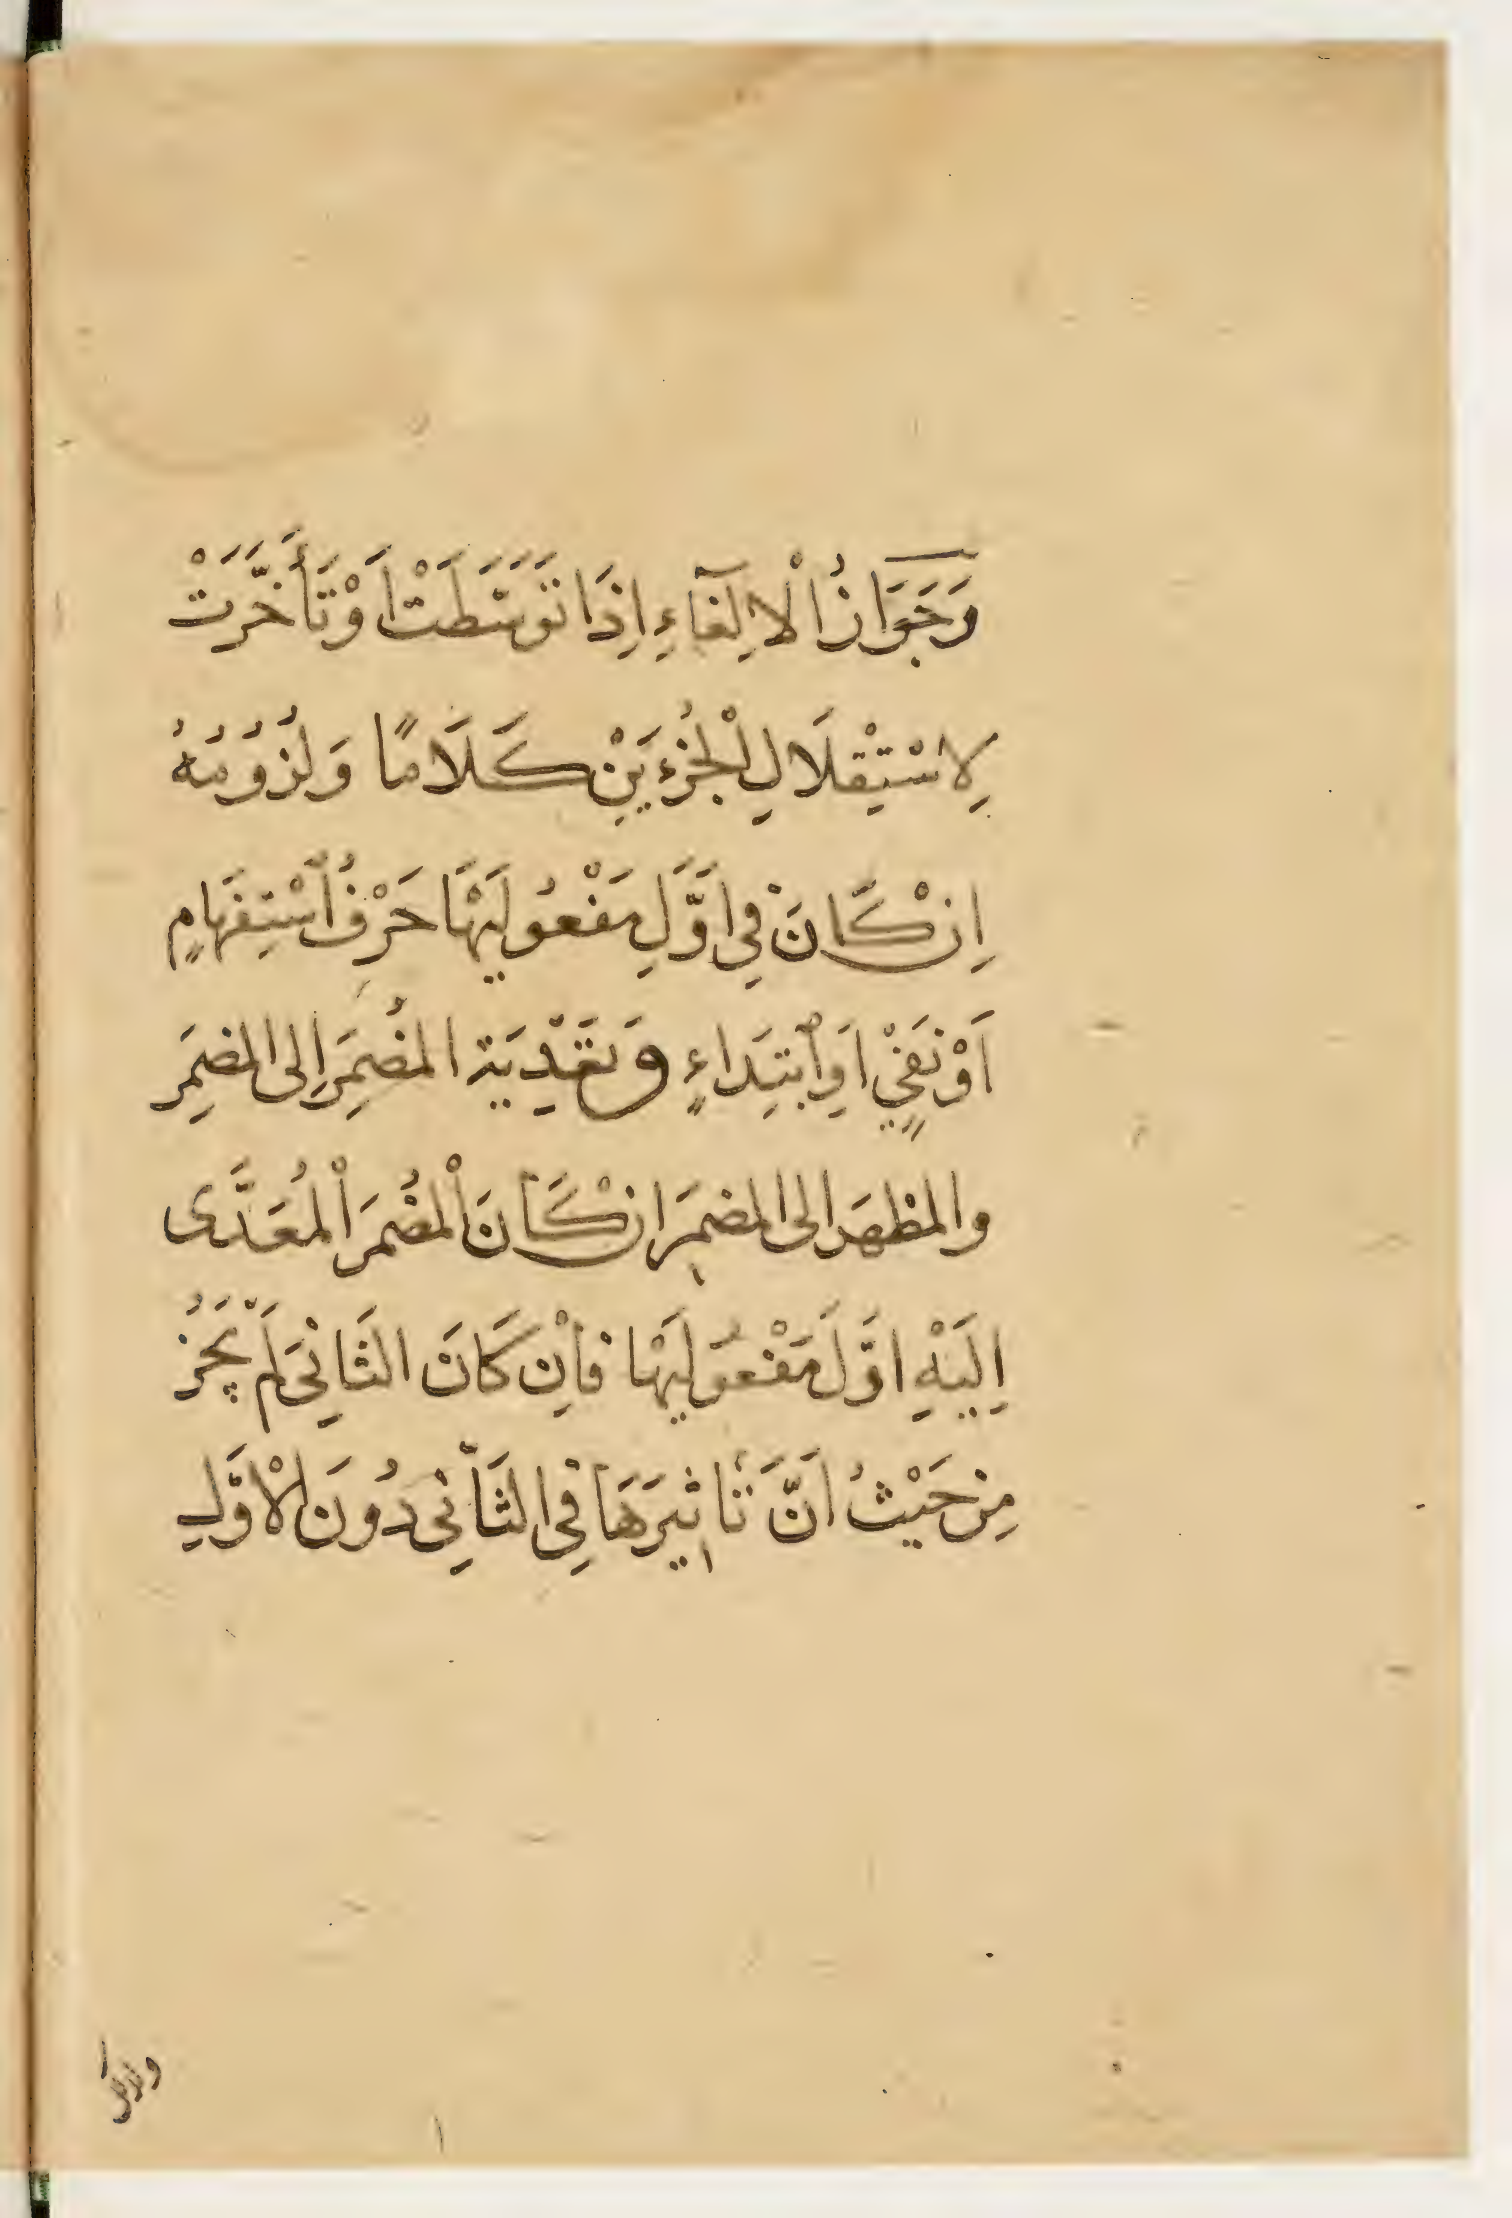 وَجَوَازُ الْاِلغَآءِ اِذَا تَوَسَّطَتْ اَوْ تَأَخَّرَتْ
لِاسْتِقْلَالِ الْجُزْءَيْنِ كَلَامًا وَلُزُومُهُ
اِنْ كَانَ فِي اَوَّلِ مَفْعُولَيْهَا حَرْفُ اسْتِفْهَامٍ
اَوْ نَفْيٍ اَوِ ابْتِدَاءٍ وَتَعْدِيَة المُضْمَرِ اِلى المضمَرِ
والمظهَر الى المضمَرِ ان كَانَ الْمُضْمَرُ الْمُعَدَّى
اِلَيْهِ اوَّلَ مَفْعُولَيْهَا فاِنْ كَانَ الثَانِىَ لَمْ يَجُزْ
مِنْ حَيْثُ اَنَّ تَاثِيرَهَا فِي الثَانِى دُونَ الْاَوَّلِ